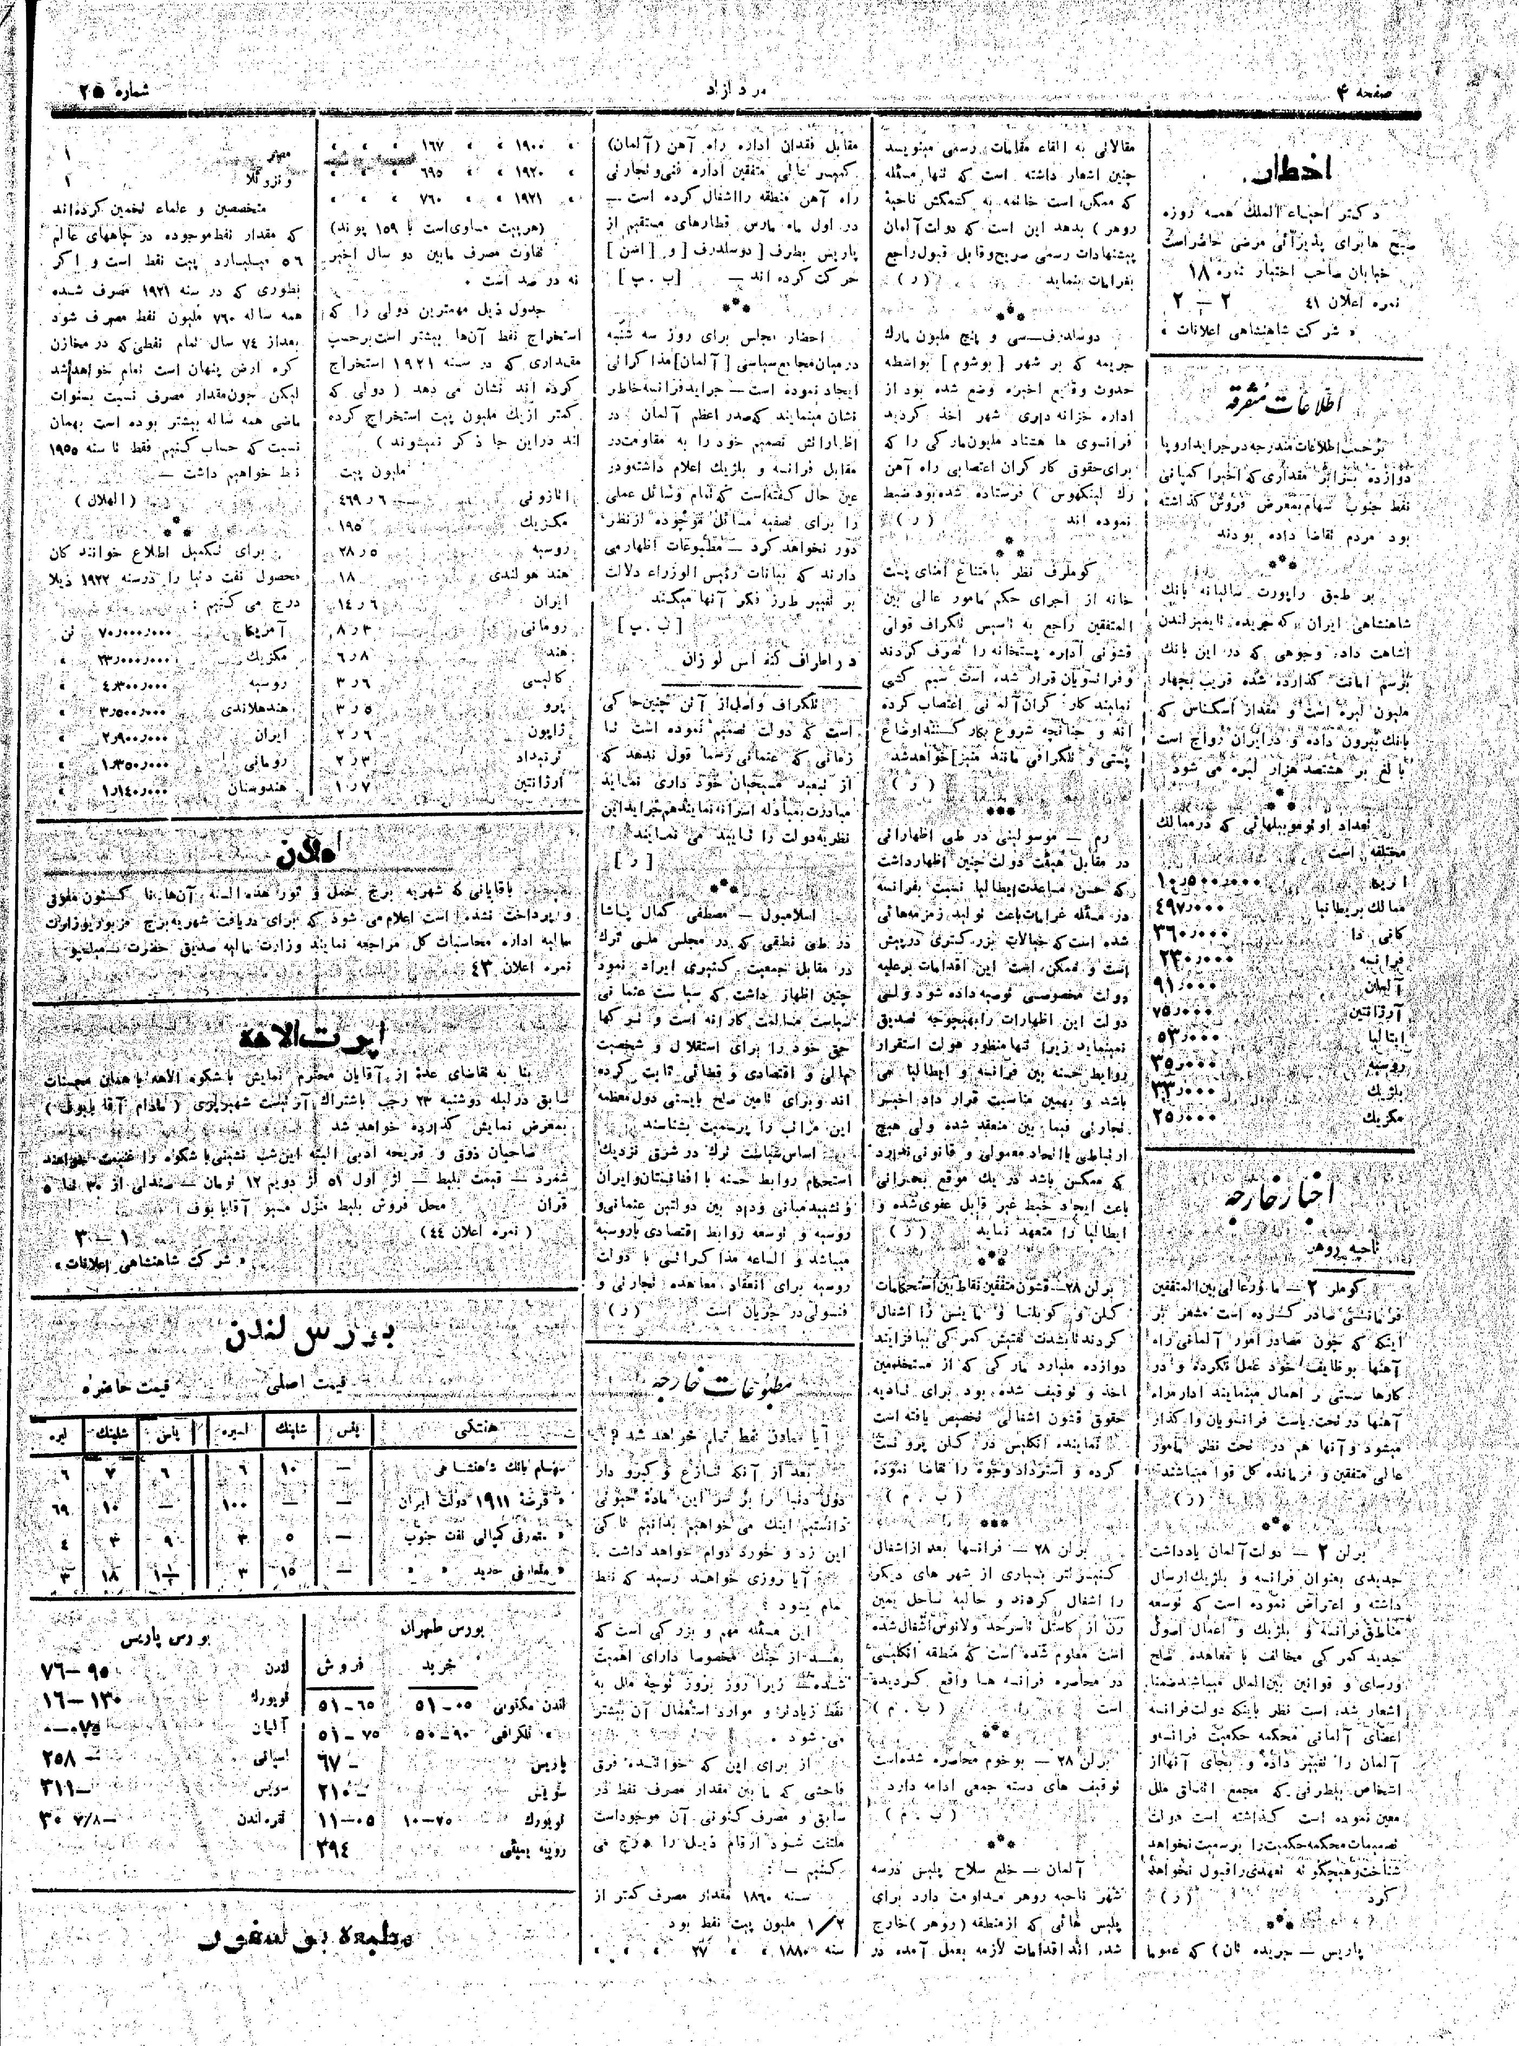 صفحه ۴
مرد آزاد
شماره ۲۵
اخطار
دکتر احیاء الملک همه روزه
صبح ها برای پذیرائی مرضی حاضر است
خیابان صاحب اختیار نمره ۱۸
نمره اعلان ۴۱ ۲ — ۲
« شرکت شاهنشاهی اعلانات »
اطلاعات متفرقه
برحسب اطلاعات مندرجه در جراید اروپا
دوازده برابر مقداری که اخیرا کمپانی
نفط جنوب سهام بمعرض فروش گذاشته
بود مردم تقاضا داده بودند
بر طبق راپورت سالیانه بانک
شاهنشاهی ایران که جریده تایمز لندن
اشاعت داده وجوهی که در این بانک
برسم امانت گذارده شده قریب بچهار
ملیون لیره است و مقدار اسکناس که
بانک بیرون داده و در ایران رواج است
بالغ بر هشتصد هزار لیره می شود
تعداد اوتوموبیلهائی که در ممالک
مختلفه است
۱۰٫۵۰۰٫۰۰۰
ممالک بریطانیا ۴۹۷٫۰۰۰
کانا دا ۳۶۰٫۰۰۰
فرانسه ۲۳۰٫۰۰۰
آلمان ۹۱٫۰۰۰
آرژانتین ۷۵٫۰۰۰
ایتالیا ۵۳٫۰۰۰
روسیه ۳۵٫۰۰۰
بلژیک ۳۳٫۰۰۰
مکزیک ۲۵٫۰۰۰
اخبار خارجه
ناحیه روهر
کوبلنز ۲ — مامور عالی بین المتفقین
فرمانی صادر کرده است مشعر بر
اینکه که چون مصادر امور آلمانی راه
آهنها بوظایف خود عمل نکرده و در
کارها سستی و اهمال مینمایند اداره راه
آهنها در تحت ریاست فرانسویان واگذار
میشود و آنها هم در تحت نظر مامور
عالی متفقین و فرمانده کل قوا میباشند
( ر )
برلن ۲ — دولت آلمان یادداشت
جدیدی بعنوان فرانسه و بلژیک ارسال
داشته و اعتراض نموده است که توسعه
مناطق فرانسه و بلژیک و اعمال اصول
جدید کمرکی مخالف با معاهده صلح
ورسای و قوانین بین الملل میباشد ضمنا
اشعار شده است نظر باینکه دولت فرانسه
اعضای آلمانی محکمه حکمیت فرانسه و
آلمان را تغییر داده و بجای آنها از
اشخاص بیطرفی که مجمع اتفاق ملل
معین نموده است گذاشته است دولت
تصمیمات محکمه حکمیت را برسمیت نخواهد
شناخت و هیچگونه تعهدی را قبول نخواهد
کرد ( ر )
پاریس — جریده تان ) که عموما
مقالاتی به القاء مقامات رسمی مینویسد
چنین اشعار داشته است که تنها مسئله
که ممکن است خاتمه به کشمکش ناحیه
روهر ) بدهد این است که دولت آلمان
پیشنهادات رسمی صریح و قابل قبول راجع
بغرامات بنماید ( ر )
دوسلدرف — سی و پنج ملیون مارک
جریمه که بر شهر [ بوشوم ] بواسطه
حدوث وقایع اخیره وضع شده بود از
اداره خزانه داری شهر اخذ کردید
فرانسوی ها هشتاد ملیون مارکی را که
برای حقوق کارکران اعتصابی راه آهن
رک لینکهوس ) فرستاده شده بود ضبط
نموده اند ( ر )
نظر بامتناع امنای پست
خانه از اجرای حکم مامور عالی بین
المتفقین راجع به تاسیس تلگراف قوای
قشونی اداره پستخانه را تصرف کردند
و فرانسویان قرار شده است
نمایند کارکران آلمانی اعتصاب کرده
اند و چنانچه شروع بکار نکنند اوضاع
پستی و تلگرافی مانند خواهد شد
( ر )
رم — موسولینی در طی اظهاراتی
در مقابل هیئت دولت چنین اظهار داشت
که حسن مساعدت ایطالیا نسبت بفرانسه
در مسئله غرامات باعث تولید زمزمه هائی
شده است که خیالات بزرگتری در پیش
است و ممکن است این اقدامات بر علیه
دولت مخصوصی توصیه داده شود ولی
دولت این اظهارات را بهیچوجه تصدیق
نمینماید زیرا تنها منظور دولت استقرار
روابط حسنه بین فرانسه و ایطالیا می
باشد و بهمین مناسبت قرار داد اخیر
تجارتی فیما بین منعقد شده ولی هیچ
ارتباطی با اتحاد معمولی و قانونی ندارد
که ممکن باشد در یک موقع بحرانی
باعث ایجاد خبط غیر قابل عفوی شده و
ایطالیا را متعهد نماید ( ر )
برلن ۲۸ — قشون متفقین نقاط بین استحکامات
کلن و کوبلنز و ماینس را اشغال
کردند تا بشدت تفتیش کمرکی بیافزایند
دوازده ملیارد مارکی که از مستخدمین
اخذ و توقیف شده بود برای تادیه
حقوق قشون اشغالی تخصیص یافته است
نماینده انکلیس در کلن پروتست
کرده و استرداد وجوه را تقاضا نموده
( ب . م )
برلن ۲۸ — فرانسها بعد از اشغال
بسیاری از شهر های دیگر
را اشغال کردند و حالیه ساحل یمین
رن از کاستل تا سرحد ولانوس اشغال شده
است معلوم شده است که منطقه انکلیسی
در محاصره فرانسه ها واقع کردیده
است ( ب . م )
برلن ۲۸ — بوخوم محاصره شده است
توقیف های دسته جمعی ادامه دارد
( ب . م )
آلمان — خلع سلاح پلیس در سه
شهر ناحیه روهر مداومت دارد برای
پلیس هائی که از منطقه ( روهر ) خارج
شده اند اقدامات لازمه بعمل آمده در
مقابل فقدان اداره راه آهن ( آلمان )
کمیسر عالی متفقین اداره فنی و تجارتی
راه آهن منطقه را اشغال کرده است —
در اول ماه مارس قطارهای مستقیم از
پاریس بطرف [ دوسلدرف ] و [ اسن ]
حرکت کرده اند — [ ب . پ ]
احضار مجلس برای روز سه شنبه
در میان مجامع سیاسی [ آلمان ] مذاکراتی
ایجاد نموده است — جراید فرانسه خاطر
نشان مینمایند که صدر اعظم آلمان در
اظهاراتش تصمیم خود را به مقاومت در
مقابل فرانسه و بلژیک اعلام داشته و در
عین حال گفته است که تمام وسائل عملی
را برای تصفیه مسائل موجوده از نظر
دور نخواهد کرد — مطبوعات اظهار می
دارند که بیانات رئیس الوزراء دلالت
بر تغییر طرز فکر آنها میکند
[ ب . پ ]
در اطراف کنفرانس لوزان
تلگراف واصل از آتن چنین حاکی
است که دولت تصمیم نموده است تا
زمانی که عثمانی رسما قول ندهد که
از تبعید مسیحیان خود داری نماید
مبادرت بمبادله اسراء ننمایند هم جراید این
نظریه دولت را تایید می نمایند
[ ر ]
اسلامبول — مصطفی کمال پاشا
در طی نطقی که در مجلس ملی ترک
در مقابل جمعیت کثیری ایراد نمود
چنین اظهار داشت که سیاست عثمانی
سیاست مسالمت کارانه است و ترکها
حق خود را برای استقلال و شخصیت
مالی و اقتصادی و قضائی ثابت کرده
اند و برای تامین صلح بایستی دول معظمه
این مراتب را برسمیت بشناسند
اساس سیاست ترک در شرق نزدیک
استحکام روابط حسنه با افغانستان و ایران
و تشیید مبانی وداد بین دولتین عثمانی و
روسیه و توسعه روابط اقتصادی با روسیه
میباشد و الساعه مذاکراتی با دولت
روسیه برای انعقاد معاهده تجارتی و
قنسولی در جریان است ( ر )
مطبوعات خارجه
آیا معادن نفط تمام خواهد شد ؟
بعد از آنکه تنازع و گیرو دار
دول دنیا را بر سر این ماده حیوتی
دانستیم اینک می خواهیم بدانیم تا کی
این زد و خورد دوام خواهد داشت .
آیا روزی خواهد رسید که نفط
تمام بشود ؟
این مسئله مهم و بزرکی است که
بعد از جنک مخصوصا دارای اهمیت
شده — زیرا روز بروز توجه ملل به
نفط زیادتر و موارد استعمال آن بیشتر
می شود .
از برای این که خواننده فرق
فاحشی که ما بین مقدار مصرف نفط در
سابق و مصرف کنونی آن موجود است
ملتفت شود ارقام ذیل را درج می
کنیم — :
سنه ۱۸۶۰ مقدار مصرف کمتر از
۱/۲ ملیون پیت نفط بود
سنه ۱۸۸۰ » » ۲۷ » » »
» ۱۹۰۰ » » ۱۶۷ » » »
» ۱۹۲۰ » » ۶۹۵ » » »
» ۱۹۲۱ » » ۷۶۰ » » »
( هر پیت مساوی است با ۱۵۹ پوند )
تفاوت مصرف مابین دو سال اخیر
نه در صد است .
جدول ذیل مهمترین دولی را که
استخراج نفط آنها بیشتر است برحسب
مقداری که در سنه ۱۹۲۱ استخراج
کرده اند نشان می دهد ( دولی که
کمتر از یک ملیون پیت استخراج کرده
اند در این جا ذکر نمیشوند )
ملیون پیت
اتازونی ۴۶۹٫۶
مکزیک ۱۹۵
روسیه ۲۸٫۵
هند هولندی ۱۸
ایران ۱۴٫۶
رومانی ۸٫۳
هند ۶٫۸
گالیسی ۳٫۶
پرو ۳٫۵
ژاپون ۲٫۶
ترنیداد ۲٫۳
آرژانتین ۱٫۷
مصر ۱
ونزوئلا ۱
متخصصین و علماء تخمین کرده اند
که مقدار نفط موجوده در چاههای عالم
۵۶ میلیارد پیت نفط است و اگر
بطوری که در سنه ۱۹۲۱ مصرف شده
همه ساله ۷۶۰ ملیون نفط مصرف شود
بعد از ۷۴ سال تمام نفطی که در مخازن
کره ارض پنهان است تمام خواهد شد
لیکن چون مقدار مصرف نسبت بسنوات
ماضی همه ساله بیشتر بوده است بهمان
نسبت که حساب کنیم فقط تا سنه ۱۹۵۵
نفط خواهیم داشت —
( الهلال )
برای تکمیل اطلاع خوانندکان
محصول نفت دنیا را در سنه ۱۹۲۲ ذیلا
درج می کنیم :
آمریکا ۷۰٫۰۰۰٫۰۰۰ تن
مکزیک ۲۳٫۰۰۰٫۰۰۰ »
روسیه ۴٫۳۰۰٫۰۰۰ »
هند هلاندی ۳٫۵۰۰٫۰۰۰ »
ایران ۲٫۹۰۰٫۰۰۰ »
رومانی ۱٫۳۵۰٫۰۰۰ »
هندوستان ۱٫۱۴۰٫۰۰۰ »
اعلان
باقایانی که شهریه برج حمل و ثور هذه السنه آنها تا کنون معوق
و پرداخت نشده است اعلام می شود که برای دریافت شهریه برج مزبور بوزارت
مالیه اداره محاسبات کل مراجعه نمایند وزارت مالیه صدیق حضرت
نمره اعلان ۴۳
اپرت الاهه
بنا به تقاضای عدۀ از آقایان محترم نمایش باشکوه الاهه با همان محسنات
سابق در لیله دوشنبه ۲۳ رجب باشتراک آرتیست شهیر پری ( مادام آقا بابوف )
بمعرض نمایش گذارده خواهد شد
صاحبان ذوق و قریحه ادبی البته این شب نشینی با شکوه را غنیمت خواهند
شمرد — قیمت بلیط — از اول ۵۱ از دویم ۱۲ تومان — صندلی از ۳۰ تا ۵
قران محل فروش بلیط منزل مسیو آقابابوف
( نمره اعلان ۴۴ ) ۱ — ۳
« شرکت شاهنشاهی اعلانات »
بورس لندن
قیمت اصلی قیمت حاضره
هفتگی پنس شلینک لیره پنس شلینک لیره
سهام بانک شاهنشاهی — ۱۰ ۶ ۶ ۷ ۶
» قرضه ۱۹۱۱ دولت ایران — — ۱۰۰ — ۱۰ ۶۹
» متعرفی کمپانی نفت جنوب — ۵ ۳ ۹ ۳ ۴
» متعارفی جدید » » — ۱۵ ۳ ۱ ۱/۲ ۱۸ ۳
بورس طهران
خرید فروش
لندن مکتوبی ۵۱-۰۵ ۵۱-۶۵
» تلگرافی ۵۰-۹۰ ۵۱-۷۵
پاریس ۶۷-
سویس ۲۱۰-
نویورک ۱۰-۷۵ ۱۱-۰۵
روپیه بمبئی ۳۹۴
بورس پاریس
لندن ۷۶-۹۵
نویورک ۱۶-۱۳۰
آلمان ۰-۰۷۵
اسپانی ۲۵۸-
سویس ۳۱۱-
نقره لندن ۳۰ ۷/۸-
مطبعه بوسفور